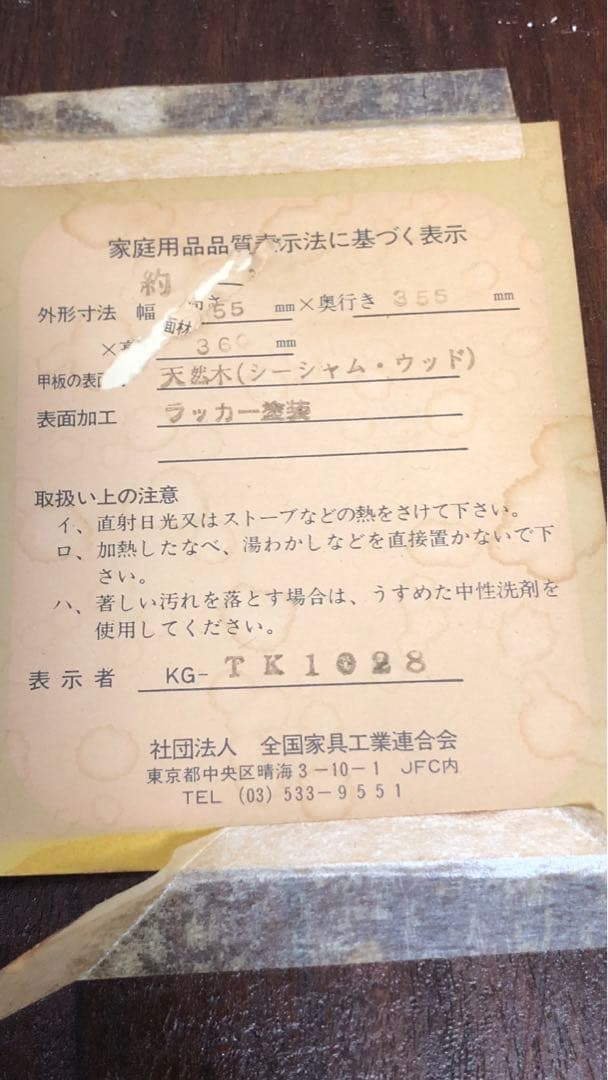 家庭用品品質表示法に基づく表示
約
外形寸法 幅 55 mm×奥行き 355 mm
× 360 mm
甲板の表面材 天然木(シーシャム・ウッド)
表面加工 ラッカー塗装
取扱い上の注意
イ、直射日光又はストーブなどの熱をさけて下さい。
ロ、加熱したなべ、湯わかしなどを直接置かないで下
さい。
ハ、著しい汚れを落とす場合は、うすめた中性洗剤を
使用してください。
表示者 KG-TK1028
社団法人 全国家具工業連合会
東京都中央区晴海3-10-1 JFC内
TEL (03)533-9551